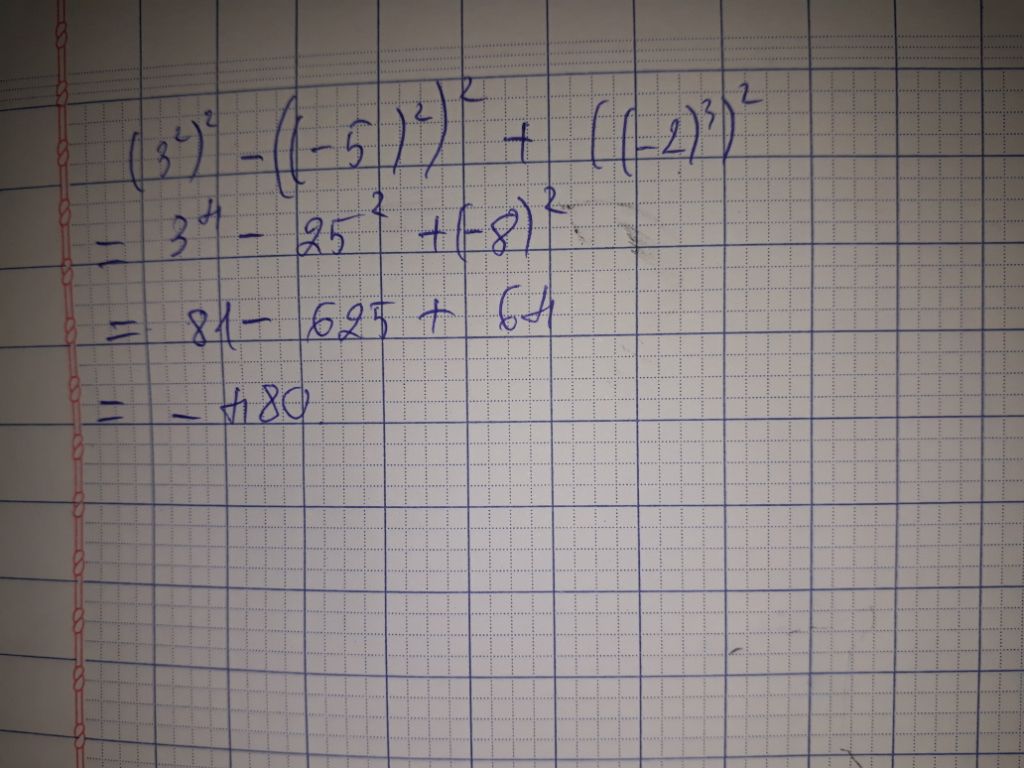 (3²)² - ((-5)²)² + ((-2)³)²
= 3⁴ - 25² + (-8)²
= 81 - 625 + 64
= - 480